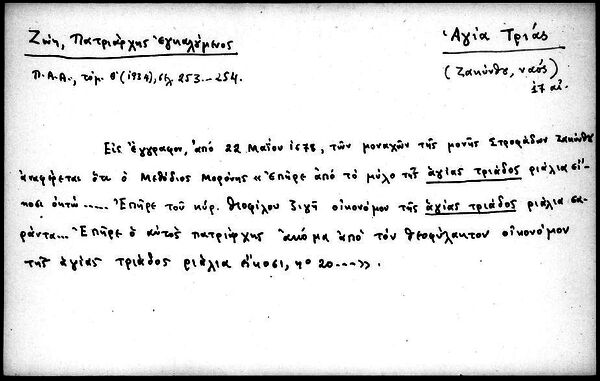 Ζώη, Πατριάρχης ἐγκαλούμενος
Ἁγία Τριάς
Π.Α.Α., τόμ. Θ' (1934), σελ. 253-254.
(Ζακύνθου, ναός)
17 αἰ.
Εἰς ἔγγραφον, ἀπό 22 Μαΐου 1678, τῶν μοναχῶν τῆς μονῆς Στροφάδων Ζακύνθου
ἀναφέρεται ὅτι ὁ Μεθόδιος Μορώνης «Ἐπῆρε ἀπό τό μύλο τῆς ἁγίας τριάδος ριάλια εἴ-
κοσι ὀκτώ..... Ἐπῆρε τοῦ κύρ. Θεοφίλου οἰκονόμου τῆς ἁγίας τριάδος ριάλια σα-
ράντα... Ἐπῆρε ὁ αὐτός πατριάρχης ἀκόμα ἀπό τόν θεοφύλακτον οἰκονόμον
τῆς ἁγίας τριάδος ριάλια εἴκοσι, νο 20...».